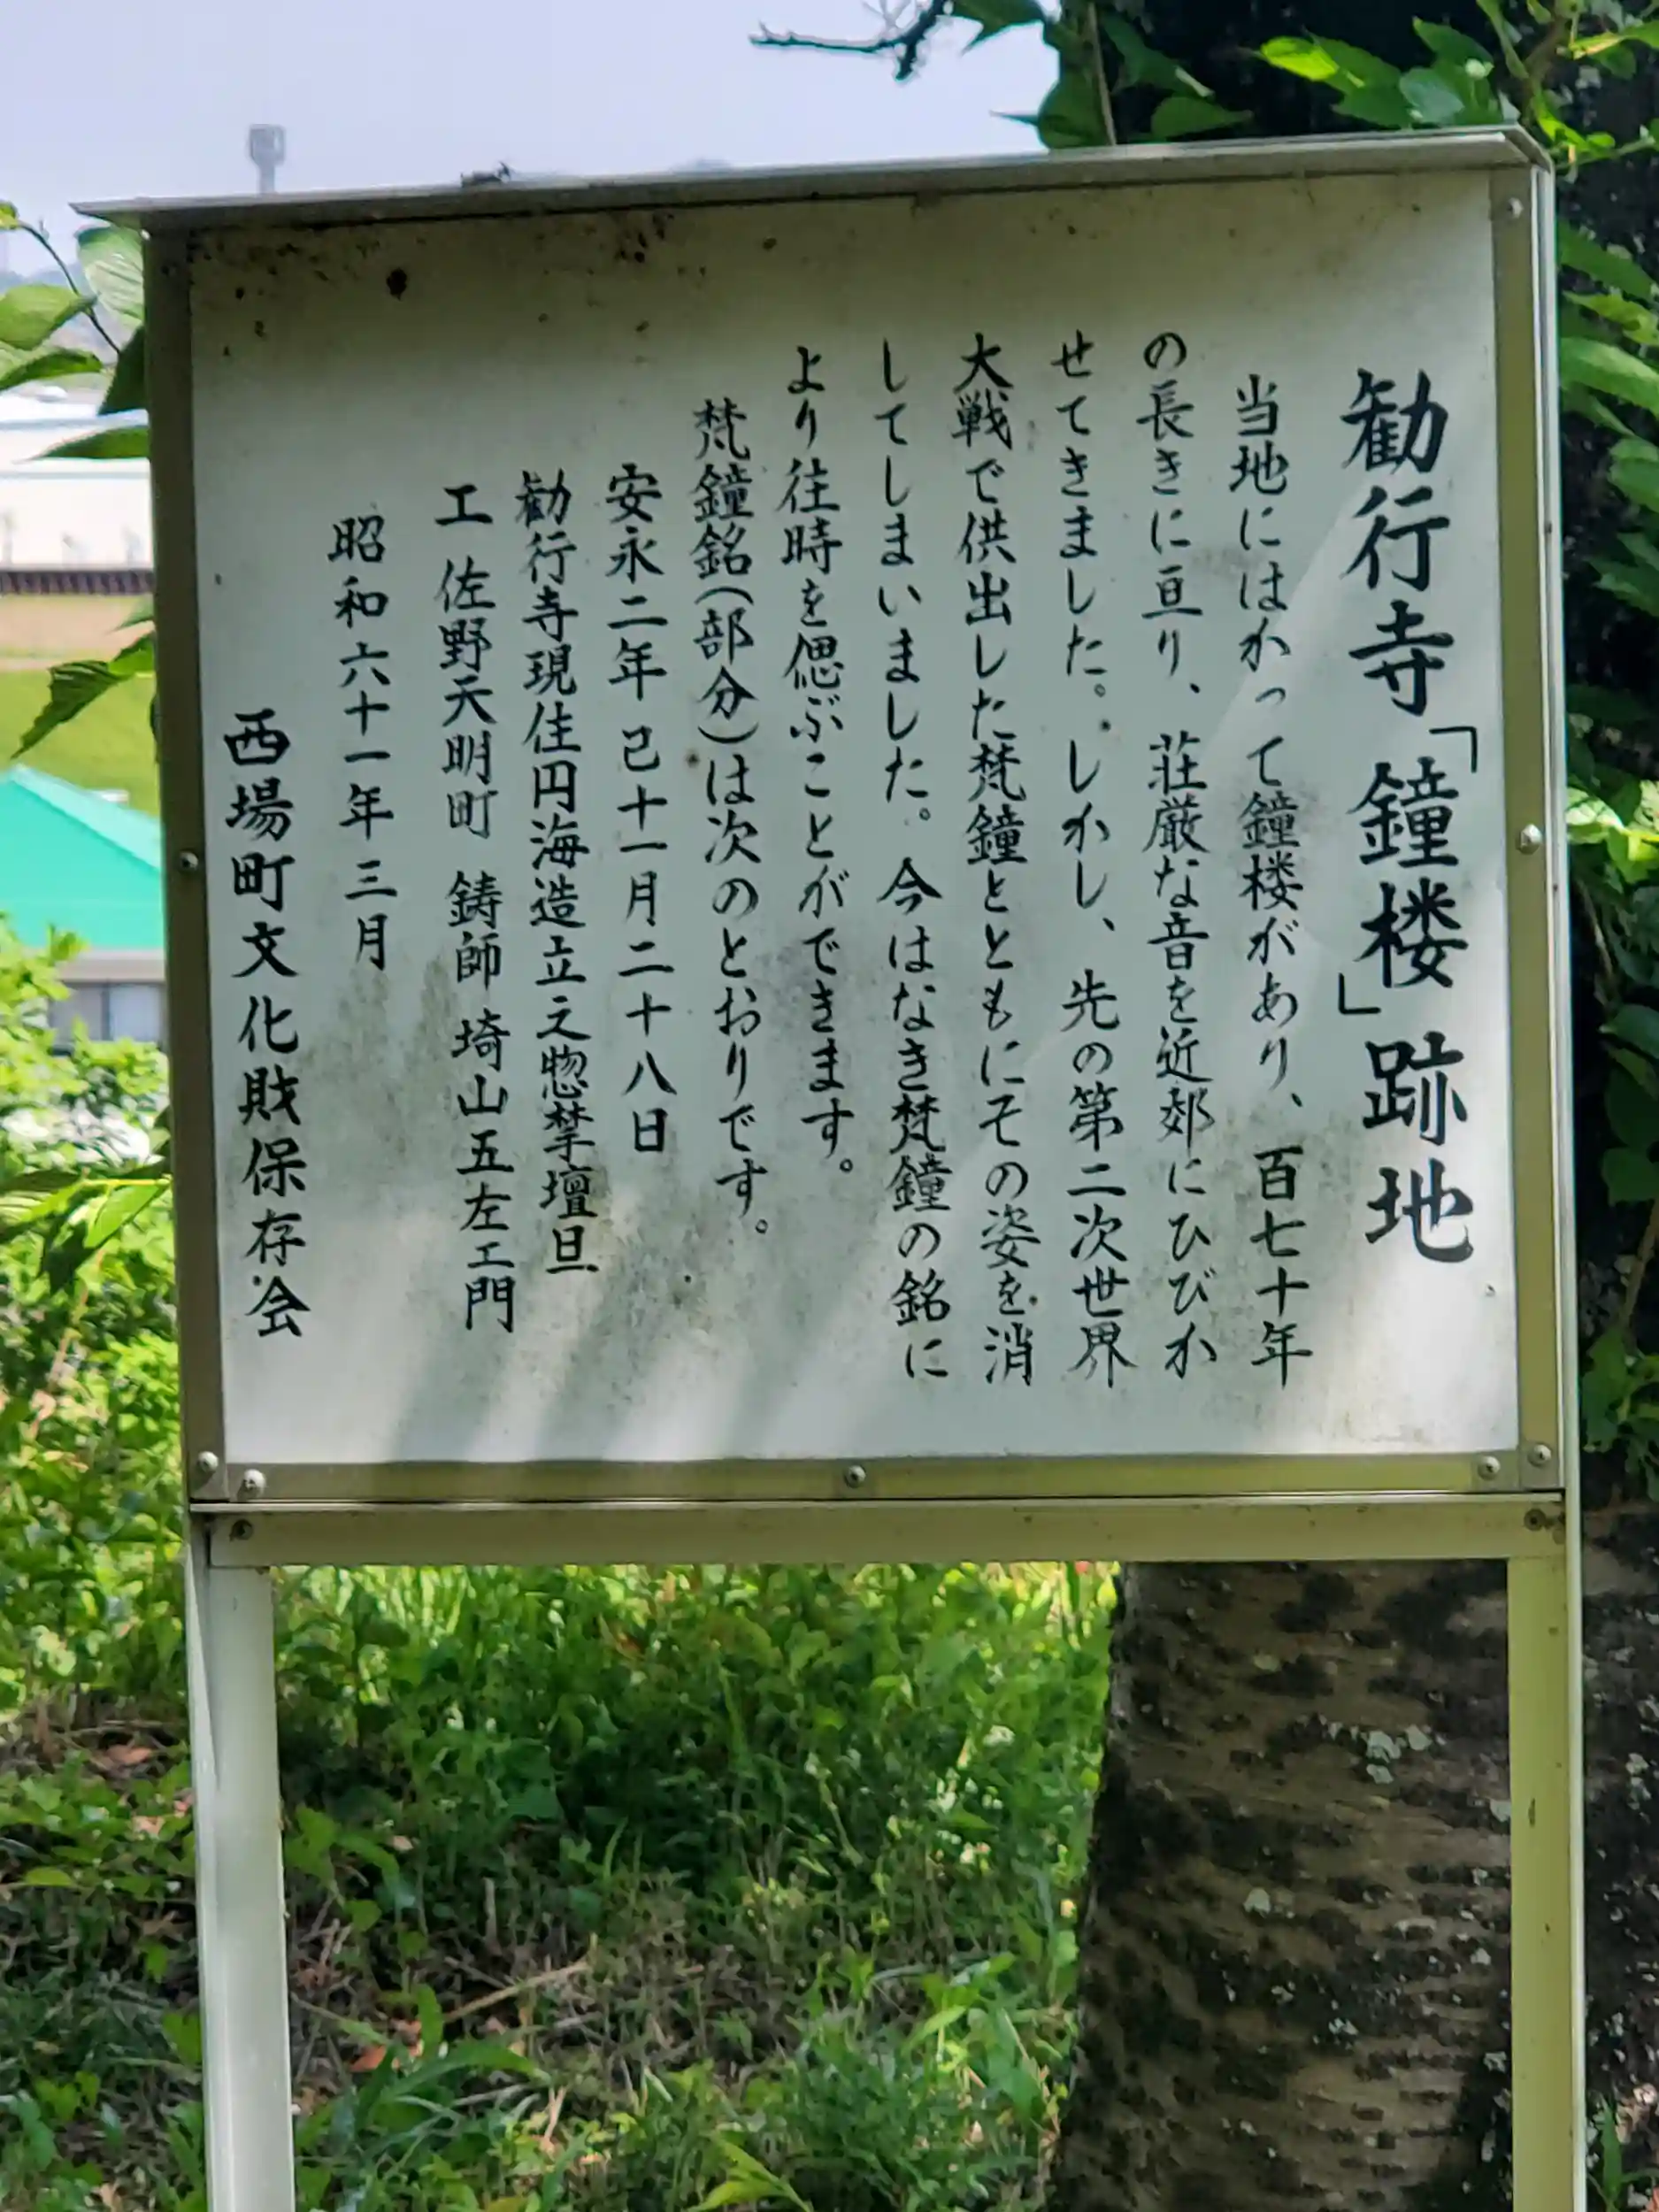 勧行寺「鐘楼」跡地
当地にはかって鐘楼があり、百七十年
の長きに亘り、荘厳な音を近郊にひびか
せてきました。しかし、先の第二次世界
大戦で供出した梵鐘とともにその姿を消
してしまいました。今はなき梵鐘の銘に
より往時を偲ぶことができます。
梵鐘銘(部分)は次のとおりです。
安永二年己十一月二十八日
勧行寺現住円海造立之惣檀旦
工 佐野天明町 鋳師 埼山五左エ門
昭和六十一年三月
西場町文化財保存会